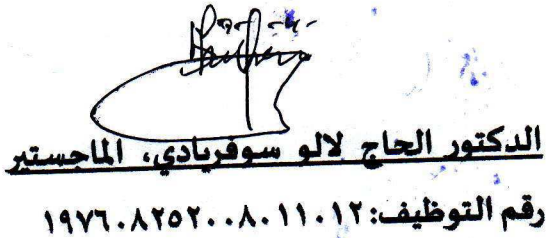 الدكتور الحاج لالو سوفريادي، الماجستير
رقم التوظيف: ١٩٧٦٠٨٢٥٢٠٠٨٠١١٠١٢